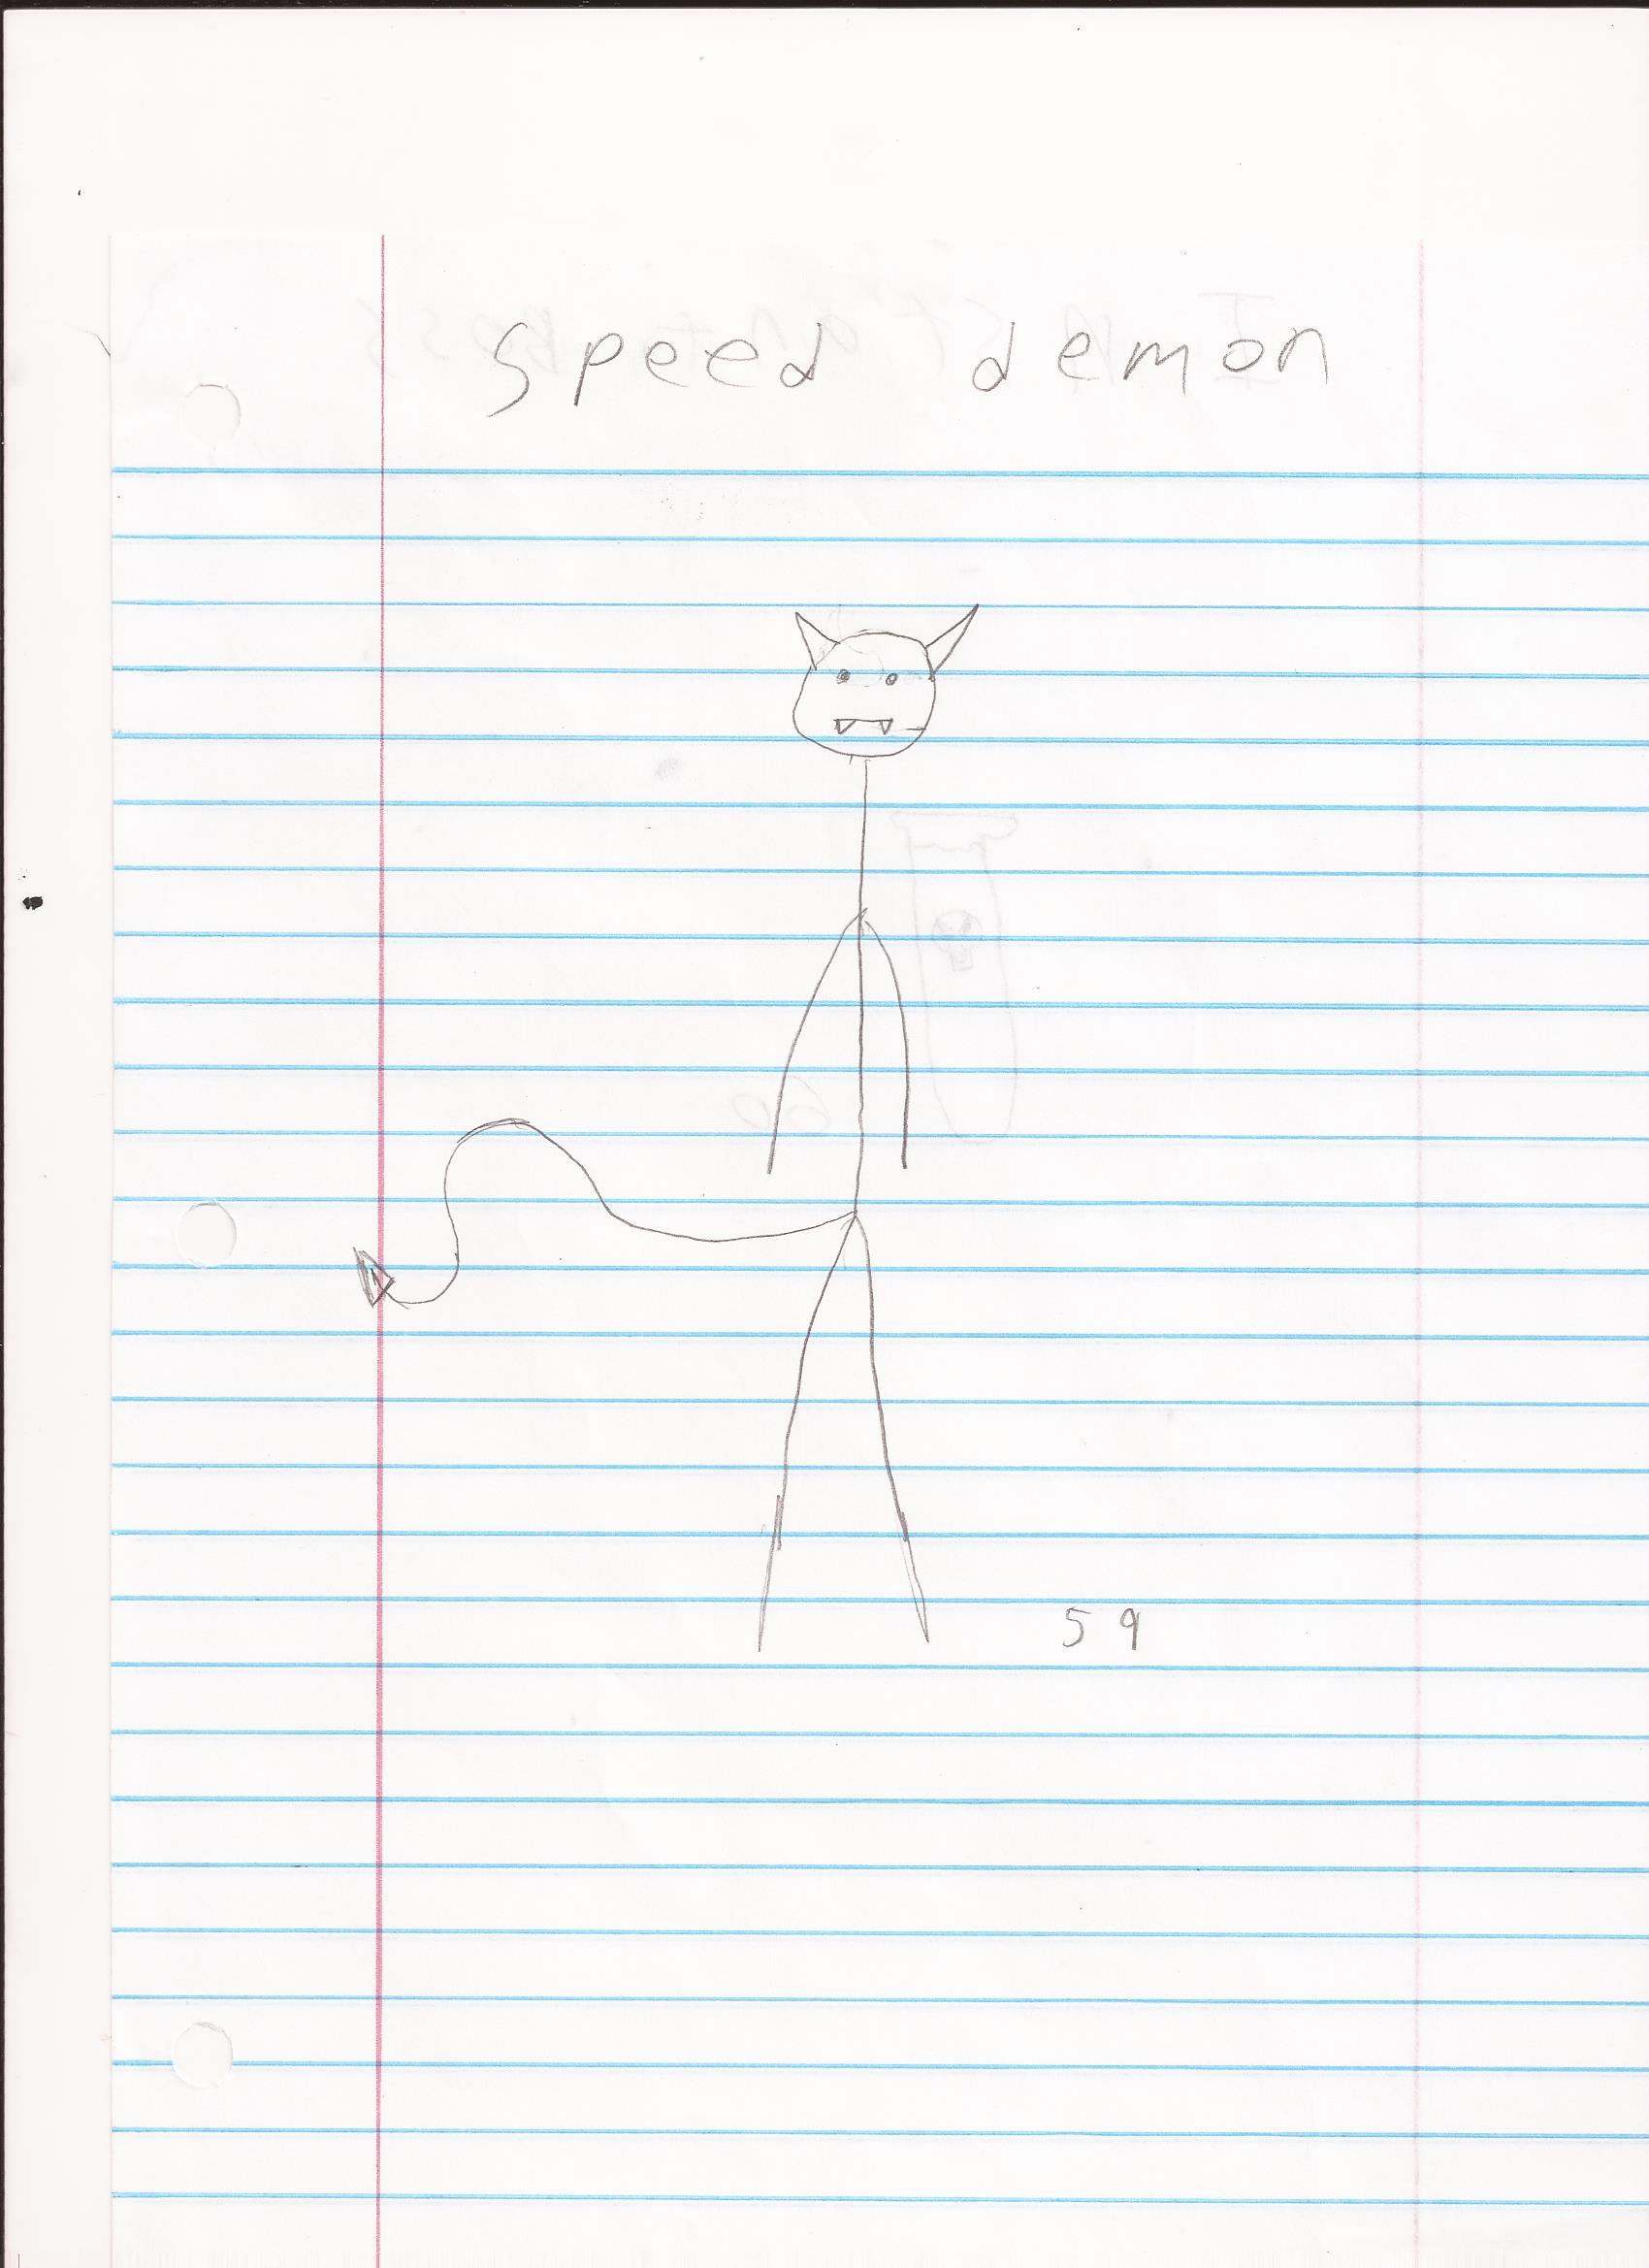 speed demon
59